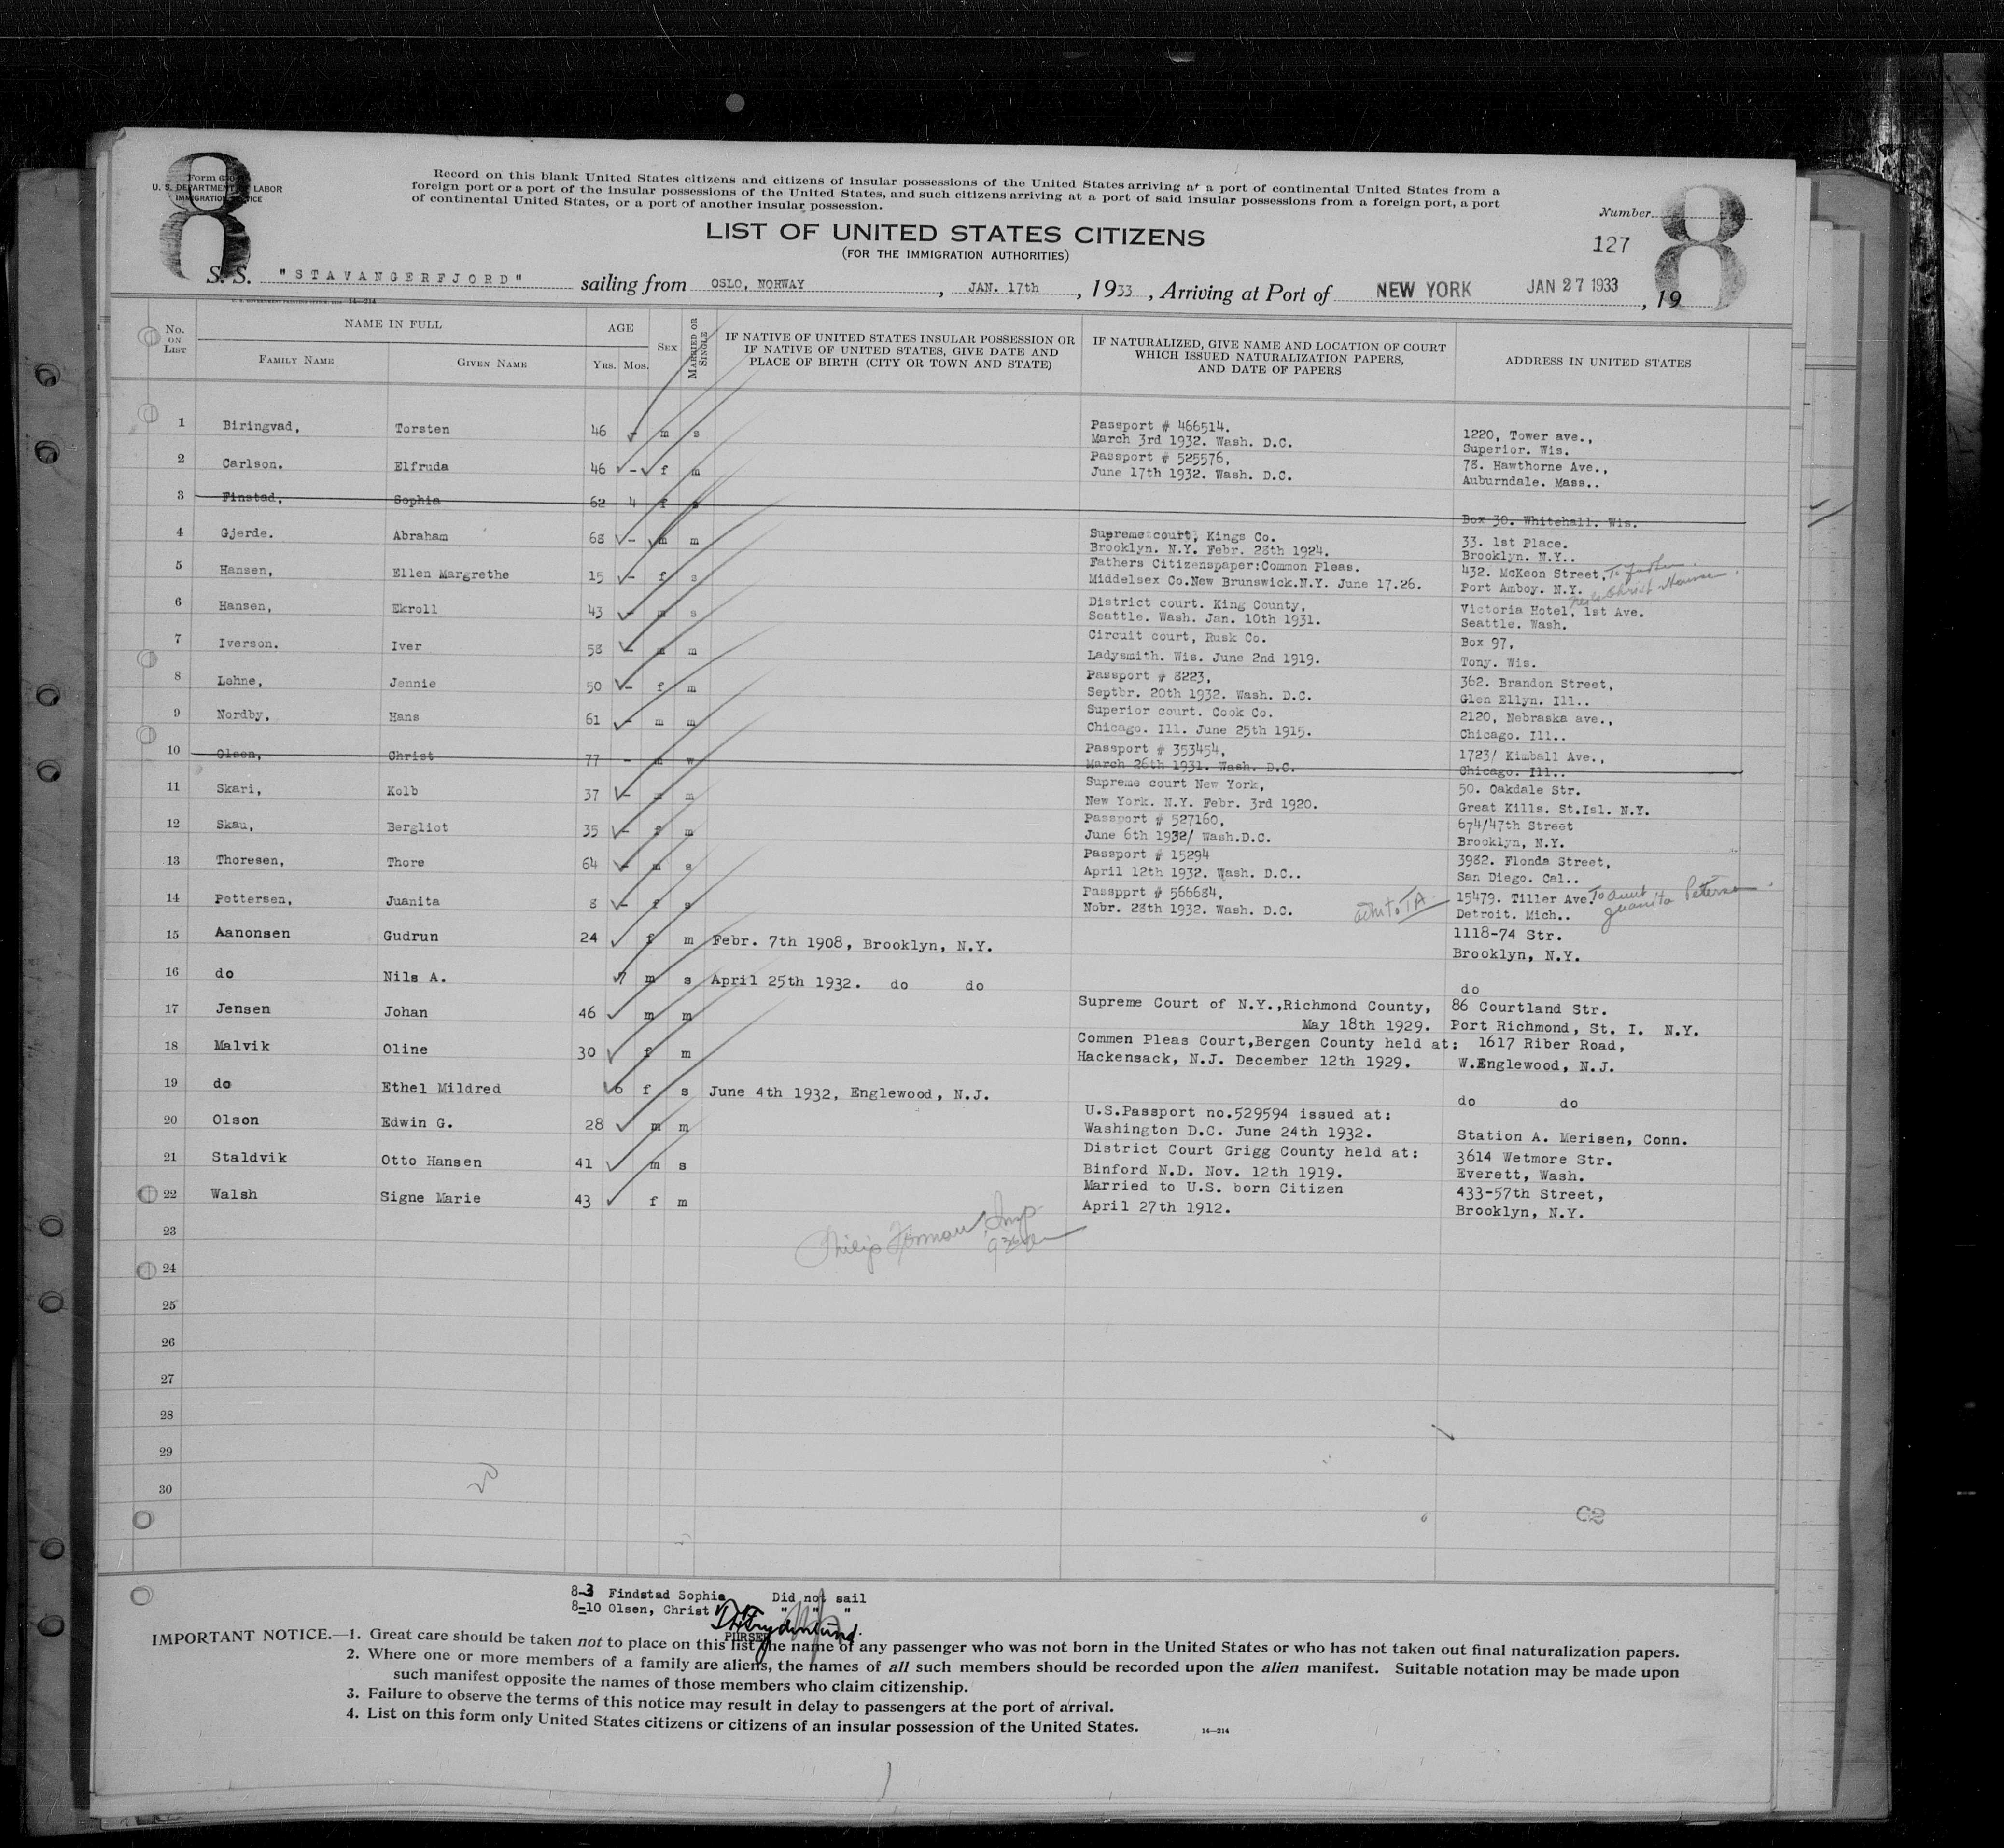 8 8
Form 630
U. S. DEPARTMENT OF LABOR
IMMIGRATION SERVICE
Record on this blank United States citizens and citizens of insular possessions of the United States arriving at a port of continental United States from a
foreign port or a port of the insular possessions of the United States, and such citizens arriving at a port of said insular possessions from a foreign port, a port
of continental United States, or a port of another insular possession.
Number
127
LIST OF UNITED STATES CITIZENS
(FOR THE IMMIGRATION AUTHORITIES)
S. S. "STAVANGERFJORD" sailing from OSLO, NORWAY, JAN. 17th, 1933, Arriving at Port of NEW YORK JAN 27 1933, 19
U. S. GOVERNMENT PRINTING OFFICE 14—214
No. ON LIST NAME IN FULL AGE SEX MARRIED OR SINGLE IF NATIVE OF UNITED STATES INSULAR POSSESSION OR IF NATIVE OF UNITED STATES, GIVE DATE AND PLACE OF BIRTH (CITY OR TOWN AND STATE) IF NATURALIZED, GIVE NAME AND LOCATION OF COURT WHICH ISSUED NATURALIZATION PAPERS, AND DATE OF PAPERS ADDRESS IN UNITED STATES
FAMILY NAME GIVEN NAME YRS. MOS.
1 Biringvad, Torsten 46 - m s Passport # 466514. 1220, Tower ave.,
March 3rd 1932. Wash. D.C. Superior. Wis.
2 Carlson. Elfruda 46 - f m Passport # 525576, 78. Hawthorne Ave.,
June 17th 1932. Wash. D.C. Auburndale. Mass..
3 Finstad, Sophia 62 4 f s
Box 30. Whitehall. Wis.
4 Gjerde. Abraham 68 - m m Supreme court, Kings Co. 33. 1st Place.
Brooklyn. N.Y. Febr. 28th 1924. Brooklyn. N.Y..
5 Hansen, Ellen Margrethe 15 - f s Fathers Citizenspaper:Common Pleas. 432. McKeon Street, To father
Middelsex Co.New Brunswick.N.Y. June 17.26. Port Amboy. N.Y. Christ Hansen
6 Hansen, Ekroll 43 - m s District court. King County, Victoria Hotel, 1st Ave.
Seattle. Wash. Jan. 10th 1931. Seattle. Wash.
7 Iverson. Iver 58 - m m Circuit court, Rusk Co. Box 97,
Ladysmith. Wis. June 2nd 1919. Tony. Wis.
8 Lohne, Jennie 50 - f m Passport # 8223, 362. Brandon Street,
Septbr. 20th 1932. Wash. D.C. Glen Ellyn. Ill..
9 Nordby, Hans 61 - m m Superior court. Cook Co. 2120, Nebraska ave.,
Chicago. Ill. June 25th 1915. Chicago. Ill..
10 Olsen, Christ 77 - m w Passport # 353454, 1723/ Kimball Ave.,
March 26th 1931. Wash. D.C. Chicago. Ill..
11 Skari, Kolb 37 - m m Supreme court New York, 50. Oakdale Str.
New York. N.Y. Febr. 3rd 1920. Great Kills. St.Isl. N.Y.
12 Skau, Bergliot 35 - f m Passport # 527160, 674/47th Street
June 6th 1932/ Wash.D.C. Brooklyn, N.Y.
13 Thoresen, Thore 64 - m s Passport # 15294 3982. Flonda Street,
April 12th 1932. Wash. D.C.. San Diego. Cal..
14 Pettersen, Juanita 8 - f s Passpprt # 566684, 15479. Tiller Ave. To aunt
Nobr. 28th 1932. Wash. D.C. Detroit. Mich.. Juanita Peterson
15 Aanonsen Gudrun 24 f m Febr. 7th 1908, Brooklyn, N.Y. 1118-74 Str.
Brooklyn, N.Y.
16 do Nils A. 7 m s April 25th 1932. do do do
17 Jensen Johan 46 m m Supreme Court of N.Y.,Richmond County, 86 Courtland Str.
May 18th 1929. Port Richmond, St. I. N.Y.
18 Malvik Oline 30 f m Commen Pleas Court,Bergen County held at: 1617 Riber Road,
Hackensack, N.J. December 12th 1929. W.Englewood, N.J.
19 do Ethel Mildred 6 f s June 4th 1932, Englewood, N.J. do do
20 Olson Edwin G. 28 m m U.S.Passport no.529594 issued at:
Washington D.C. June 24th 1932. Station A. Merisen, Conn.
21 Staldvik Otto Hansen 41 m s District Court Grigg County held at: 3614 Wetmore Str.
Binford N.D. Nov. 12th 1919. Everett, Wash.
22 Walsh Signe Marie 43 f m Married to U.S. born Citizen 433-57th Street,
April 27th 1912. Brooklyn, N.Y.
23
24
25
26
27
28
29
30
8-3 Findstad Sophia Did not sail
8-10 Olsen, Christ " " "
PURSER
IMPORTANT NOTICE.—1. Great care should be taken not to place on this list the name of any passenger who was not born in the United States or who has not taken out final naturalization papers.
2. Where one or more members of a family are aliens, the names of all such members should be recorded upon the alien manifest. Suitable notation may be made upon
such manifest opposite the names of those members who claim citizenship.
3. Failure to observe the terms of this notice may result in delay to passengers at the port of arrival.
4. List on this form only United States citizens or citizens of an insular possession of the United States.
14—214